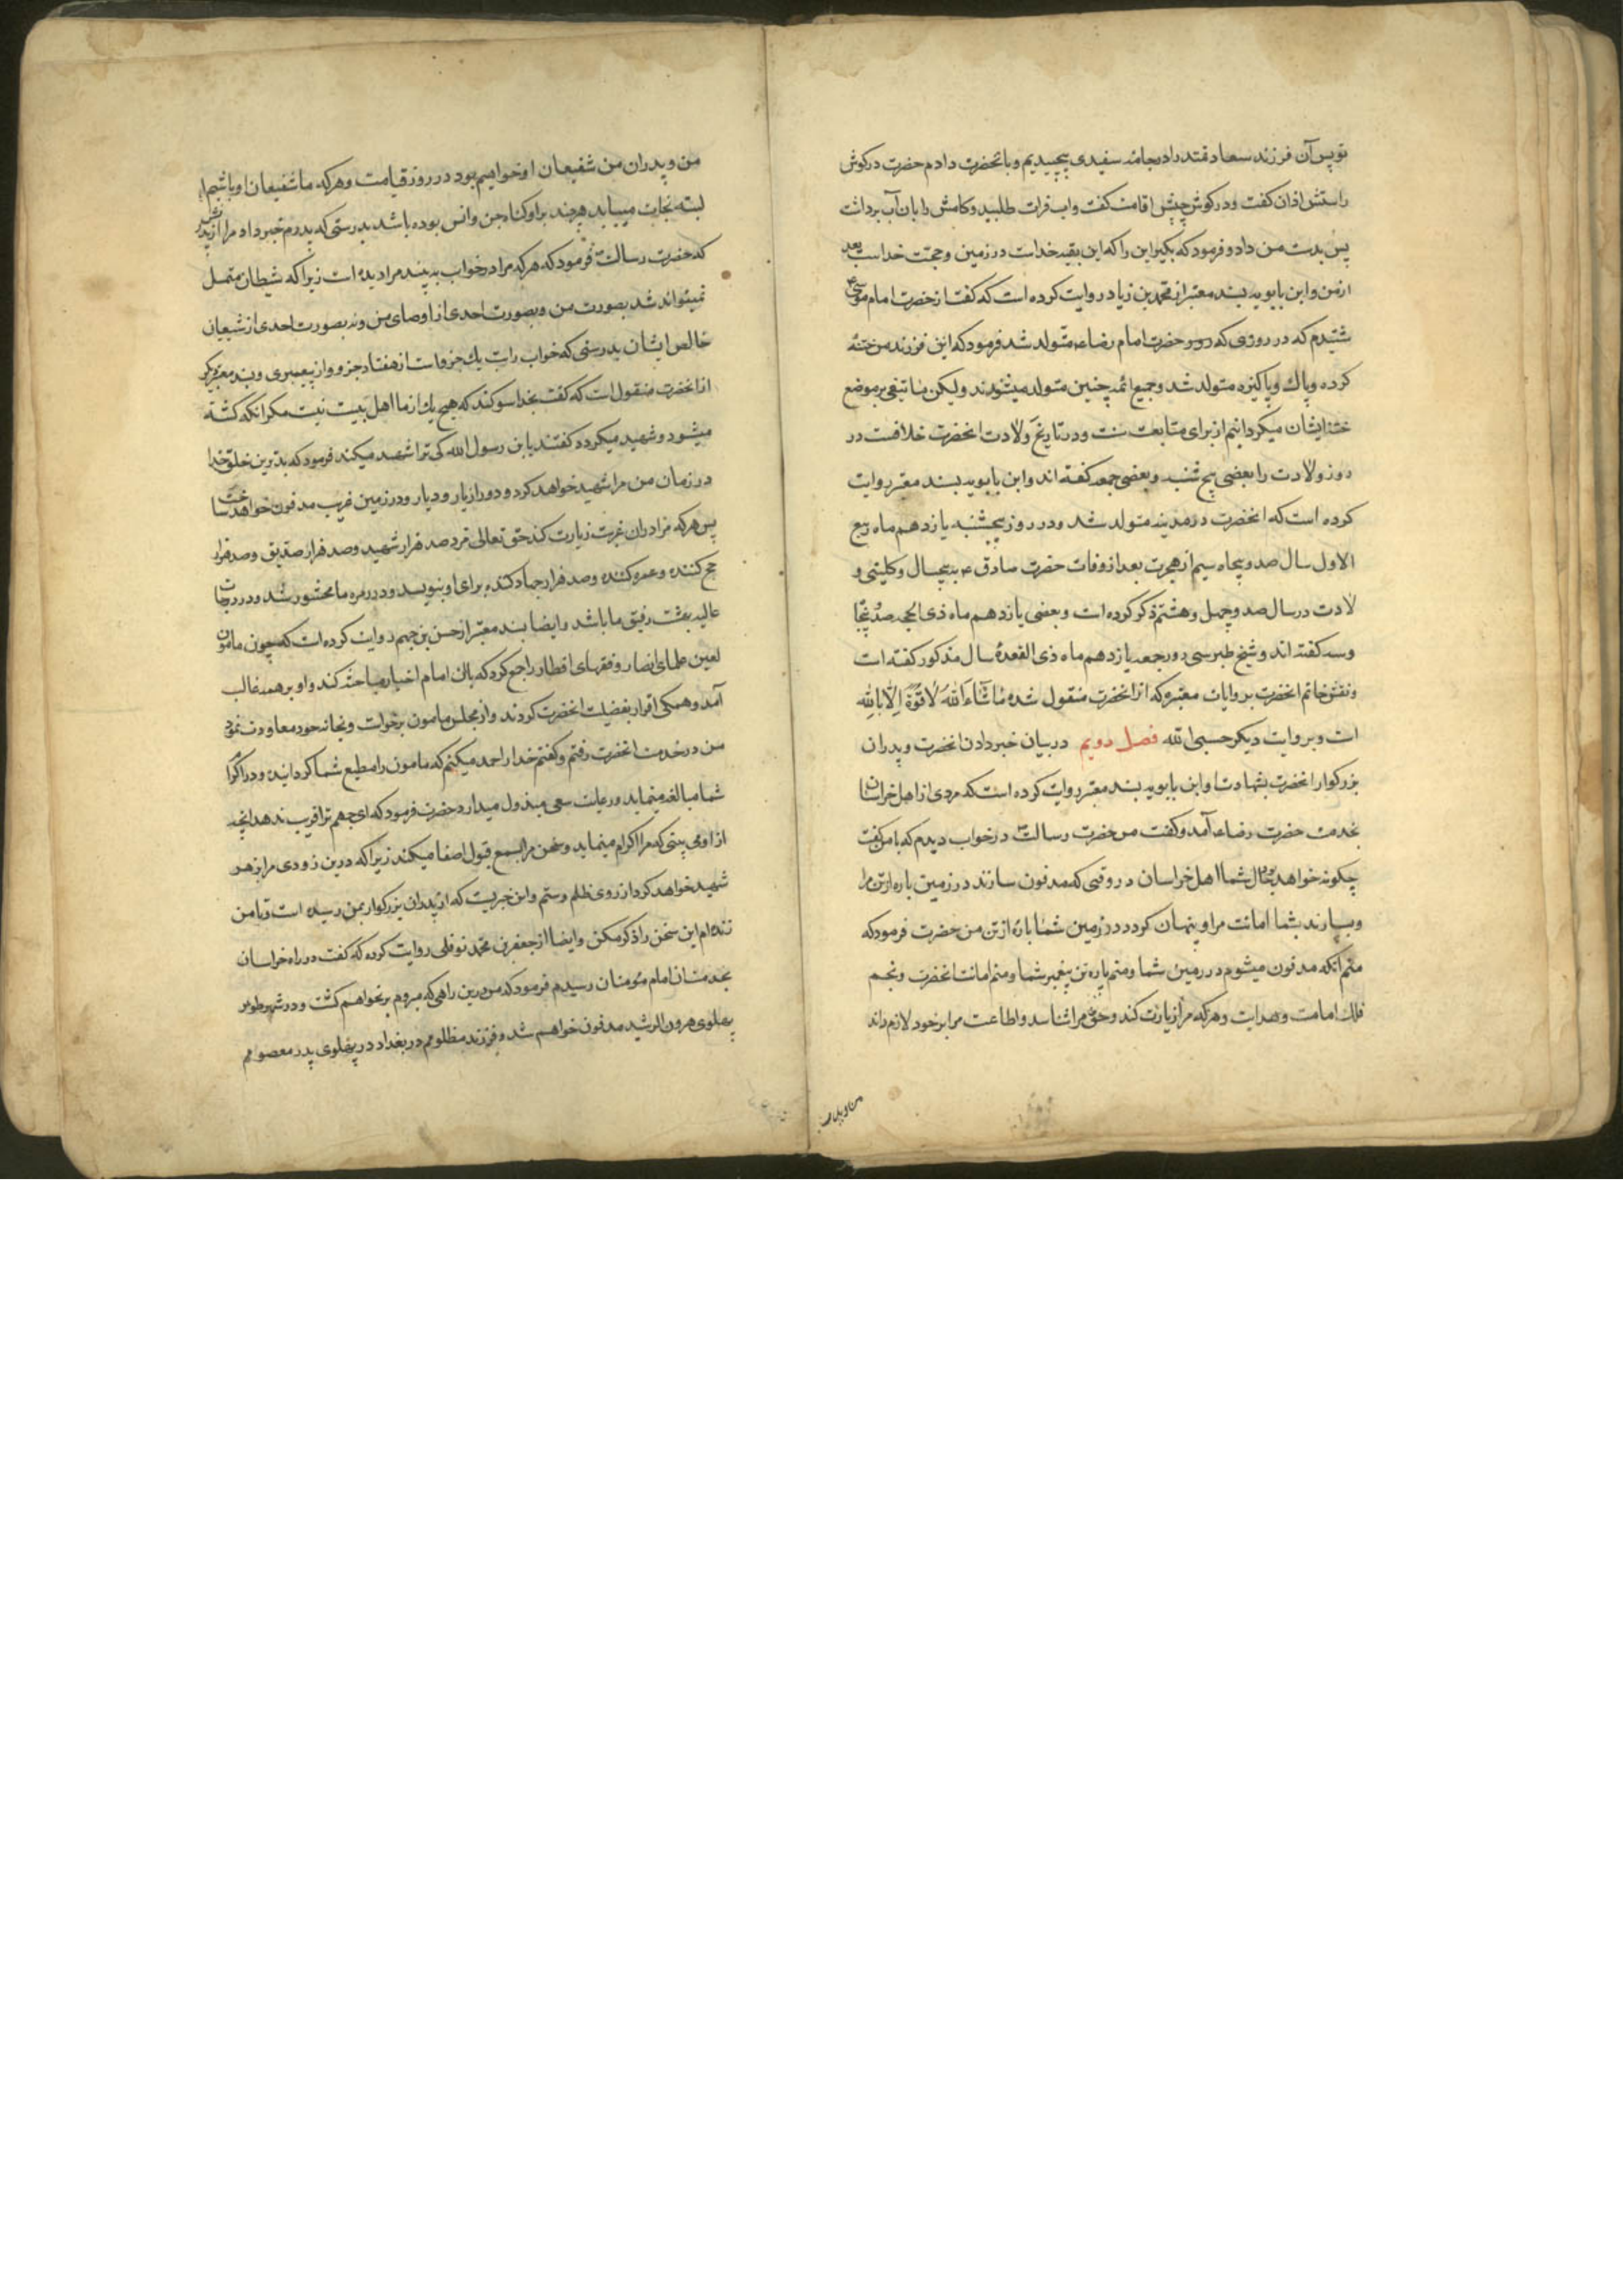 تو پس آن فرزند سعادتمند را در جامهٔ سفیدی پیچیدیم و بانحضرت دادم حضرت در کوش
راستش اذان کفت و در کوش چپش اقامت کفت و اب فرات طلبید و کامش را بان آب برداشت
پس بدست من داد و فرمود که بکیر این را که این بقیه خداست در زمین و حجت خداست بعد
از من و ابن بابویه بسند معتبر از محمد بن زیاد روایت کرده است که کفت از حضرت امام موسی
شنیدم که در روزی که حضرت امام رضا متولد شد فرمود که این فرزند من ختنه
کرده و پاك و پاکیزه متولد شد و جمیع ائمه چنین متولد میشوند و لیکن ما تیغی بر موضع
ختنه ایشان میکردانیم از برای متابعت سنت و در تاریخ ولادت انحضرت خلافست در
روز ولادت را بعضی پنج شنبه و بعضی جمعه کفته اند و ابن بابویه بسند معتبر روایت
کرده است که انحضرت در مدینه متولد شد و در روز پنجشنبه یازدهم ماه ربیع
الاول سال صد و پنجاه سیم از هجرت بعد از وفات حضرت صادق ع به پنجسال و کلینی و
لادت در سال صد و چهل و هشتم ذکر کرده است و بعضی یازدهم ماه ذی الحجه صد و پنجا
و سه کفته اند و شیخ طبرسی روز جمعه یازدهم ماه ذی القعدهٔ سال مذکور کفته است
و نقش خاتم انحضرت بروایات معتبره که از انحضرت منقول شده مَا شَاءَ اللّٰهُ لَا قُوَّةَ اِلَّا بِاللّٰهِ
است و بروایت دیکر حسبی اللّه فصل دویم در بیان خبر دادن انحضرت و پدران
بزرکوار انحضرت بشهادت او ابن بابویه بسند معتبر روایت کرده است که مردی از اهل خراسان
بخدمت حضرت رضا ع آمد و کفت من حضرت رسالت در خواب دیدم که با من کفت
چکونه خواهد بود حال شما اهل خراسان در وقتی که مدفون سازند در زمین پاره از تن مرا
و بسپارند بشما امانت مرا و پنهان کردد در زمین شما پاره از تن من حضرت فرمود که
منم آنکه مدفون میشوم در زمین شما و منم پاره تن پیغمبر شما و منم امانت انحضرت و نجم
فلك امامت و هدایت و هر که مرا زیارت کند و حق مرا شناسد و اطاعت مرا بر خود لازم داند
من و پدران
من و پدران من شفیعان او خواهیم بود در روز قیامت و هر که ما شفیعان او باشیم ا
لبته نجات مییابد هر چند بر او کناه جن و انس بوده باشد بدرستی که پدرم خبر داد مرا از پدر
که حضرت رسالت فرمود که هر که مرا در خواب به بیند مرا دیده است زیرا که شیطان متمثل
نمیتواند شد بصورت من و بصورت احدی از اوصیای من و نه بصورت احدی از شیعیان
خالص ایشان بدرستی که خواب راست یك جزو است از هفتاد جزو از پیغمبری و بسند معتبر دیکر
از انحضرت منقول است که کفت بخدا سوکند که هیچ یك از ما اهل بیت نیست مکر انکه کشته
میشود و شهید میکردد کفتند یا بن رسول اللّه کی ترا شهید میکند فرمود که بدترین خلق خدا
در زمان من مرا شهید خواهد کرد و دور از یار و دیار و در زمین غریب مدفون خواهد ساخت
پس هر که مرا در ان غربت زیارت کند حق تعالی مزد صد هزار شهید و صد هزار صدیق و صد هزار
حج کننده و عمره کننده و صد هزار جهاد کننده برای او بنویسد و در زمره ما محشور شد و در درجات
عالیه بهشت رفیق ما باشد و ایضا بسند معتبر از حسن بن جهم روایت کرده است که چون مامون
لعین علمای انصار و فقهای اقطار را جمع کرد که با ان امام اخیار مباحثه کند و او بر همه غالب
آمد و همکی اقرار بفضیلت انحضرت کردند و از مجلس مامون برخواست و بخانه خود معاودت نمود
من در خدمت انحضرت رفتم و کفتم خدا را حمد میکنم که مامون را مطیع شما کردانیده و در اکرام
شما مبالغه مینماید و رعایت سعی مبذول میدارد حضرت فرمود که ای جهم ترا فریب ندهد انچه
از او می بینی که مرا اکرام مینماید و سخن مرا بسمع قبول اصغا میکند زیرا که درین زودی مرا بزهر
شهید خواهد کرد از روی ظلم و ستم و این خبریست که از پدران بزرکوار بمن رسیده است و تا من
زنده ام این سخن را ذکر مکن و ایضا از جعفر بن محمد نوفلی روایت کرده که کفت در راه خراسان
بخدمت ان امام مؤمنان رسیدم فرمود که من درین راهی که میروم بر نخواهم کشت و در شهر طوس
پهلوی هرون الرشید مدفون خواهم شد و فرزند مظلومم در بغداد در پهلوی پدر معصومم